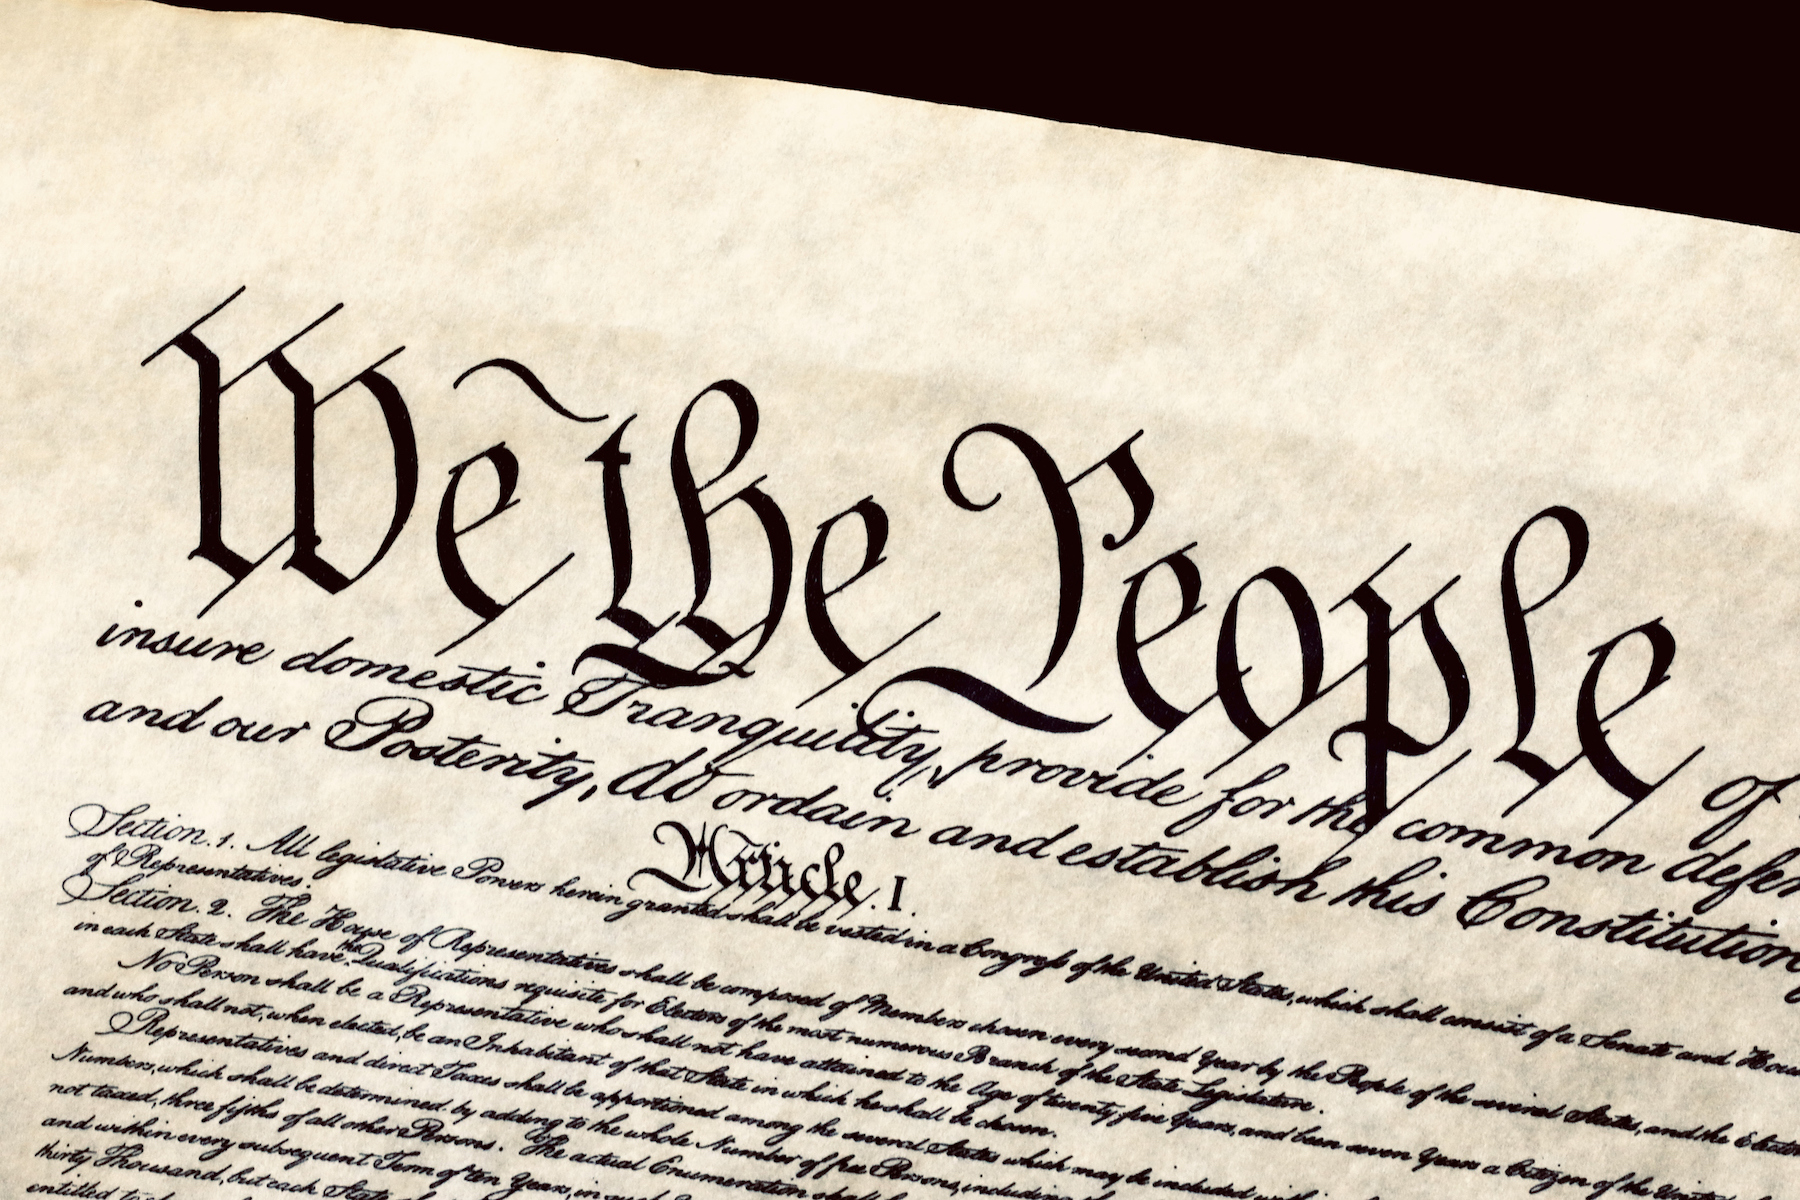 We the People of
insure domestic Tranquility, provide for the common defen
and our Posterity, do ordain and establish this Constitution
Article. I.
Section. 1. All legislative Powers herein granted shall be vested in a Congress of the United States, which shall consist of a Senate and Hou
of Representatives.
Section. 2. The House of Representatives shall be composed of Members chosen every second Year by the People of the several States, and the Elector
in each State shall have the Qualifications requisite for Electors of the most numerous Branch of the State Legislature.
No Person shall be a Representative who shall not have attained to the Age of twenty five Years, and been seven Years a Citizen of the United
and who shall not, when elected, be an Inhabitant of that State in which he shall be chosen.
Representatives and direct Taxes shall be apportioned among the several States which may be included within
Numbers, which shall be determined by adding to the whole Number of free Persons, including
not taxed, three fifths of all other Persons. The actual Enumeration shall
and within every subsequent Term of ten Years, in such
thirty Thousand, but each State
entitled to